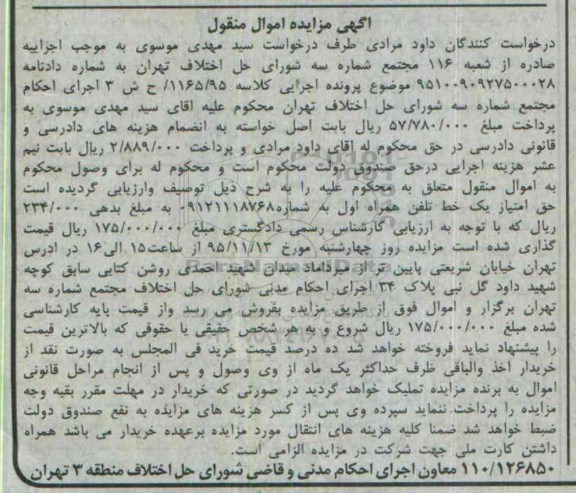 آگهی مزایده اموال منقول
درخواست کنندگان داود مرادی طرف درخواست سید مهدی موسوی به موجب اجرائیه
صادره از شعبه ۱۱۶ مجتمع شماره سه شورای حل اختلاف تهران به شماره دادنامه
۹۵۱۰۰۹۰۹۲۷۵۰۰۰۲۸ موضوع پرونده اجرایی کلاسه ۱۱۶۵/۹۵/ ح ش ۳ اجرای احکام
مجتمع شماره سه شورای حل اختلاف تهران محکوم علیه اقای سید مهدی موسوی به
پرداخت مبلغ ۵۷/۷۸۰/۰۰۰ ریال بابت اصل خواسته به انضمام هزینه های دادرسی و
قانونی دادرسی در حق محکوم له اقای داود مرادی و پرداخت ۲/۸۸۹/۰۰۰ ریال بابت نیم
عشر هزینه اجرایی درحق صندوق دولت محکوم است و محکوم له برای وصول محکوم
به اموال منقول متعلق به محکوم علیه را به شرح ذیل توصیف وارزیابی گردیده است
حق امتیاز یک خط تلفن همراه اول به شماره۰۹۱۲۱۱۱۸۷۶۸ به مبلغ بدهی ۲۳۴/۰۰۰
ریال که با توجه به ارزیابی کارشناس رسمی دادگستری مبلغ ۱۷۵/۰۰۰/۰۰۰ ریال قیمت
گذاری شده است مزایده روز چهارشنبه مورخ ۹۵/۱۱/۱۳ از ساعت۱۵ الی۱۶ در ادرس
تهران خیابان شریعتی پایین تر از میرداماد میدان شهید احمدی روشن کتابی سابق کوچه
شهید داود گل نبی پلاک ۳۴ اجرای احکام مدنی شورای حل اختلاف مجتمع شماره سه
تهران برگزار و اموال فوق از طریق مزایده بفروش می رسد واز قیمت پایه کارشناسی
شده مبلغ ۱۷۵/۰۰۰/۰۰۰ ریال شروع و به هر شخص حقیقی یا حقوقی که بالاترین قیمت
را پیشنهاد نماید فروخته خواهد شد ده درصد قیمت خرید فی المجلس به صورت نقد از
خریدار اخذ والباقی ظرف حداکثر یک ماه از وی وصول و پس از انجام مراحل قانونی
اموال به برنده مزایده تملیک خواهد گردید در صورتی که خریدار در مهلت مقرر بقیه وجه
مزایده را پرداخت ننماید سپرده وی پس از کسر هزینه های مزایده به نفع صندوق دولت
ضبط خواهد شد ضمنا کلیه هزینه های انتقال مورد مزایده برعهده خریدار می باشد همراه
داشتن کارت ملی جهت شرکت در مزایده الزامی است.
۱۱۰/۱۲۶۸۵۰ معاون اجرای احکام مدنی و قاضی شورای حل اختلاف منطقه ۳ تهران